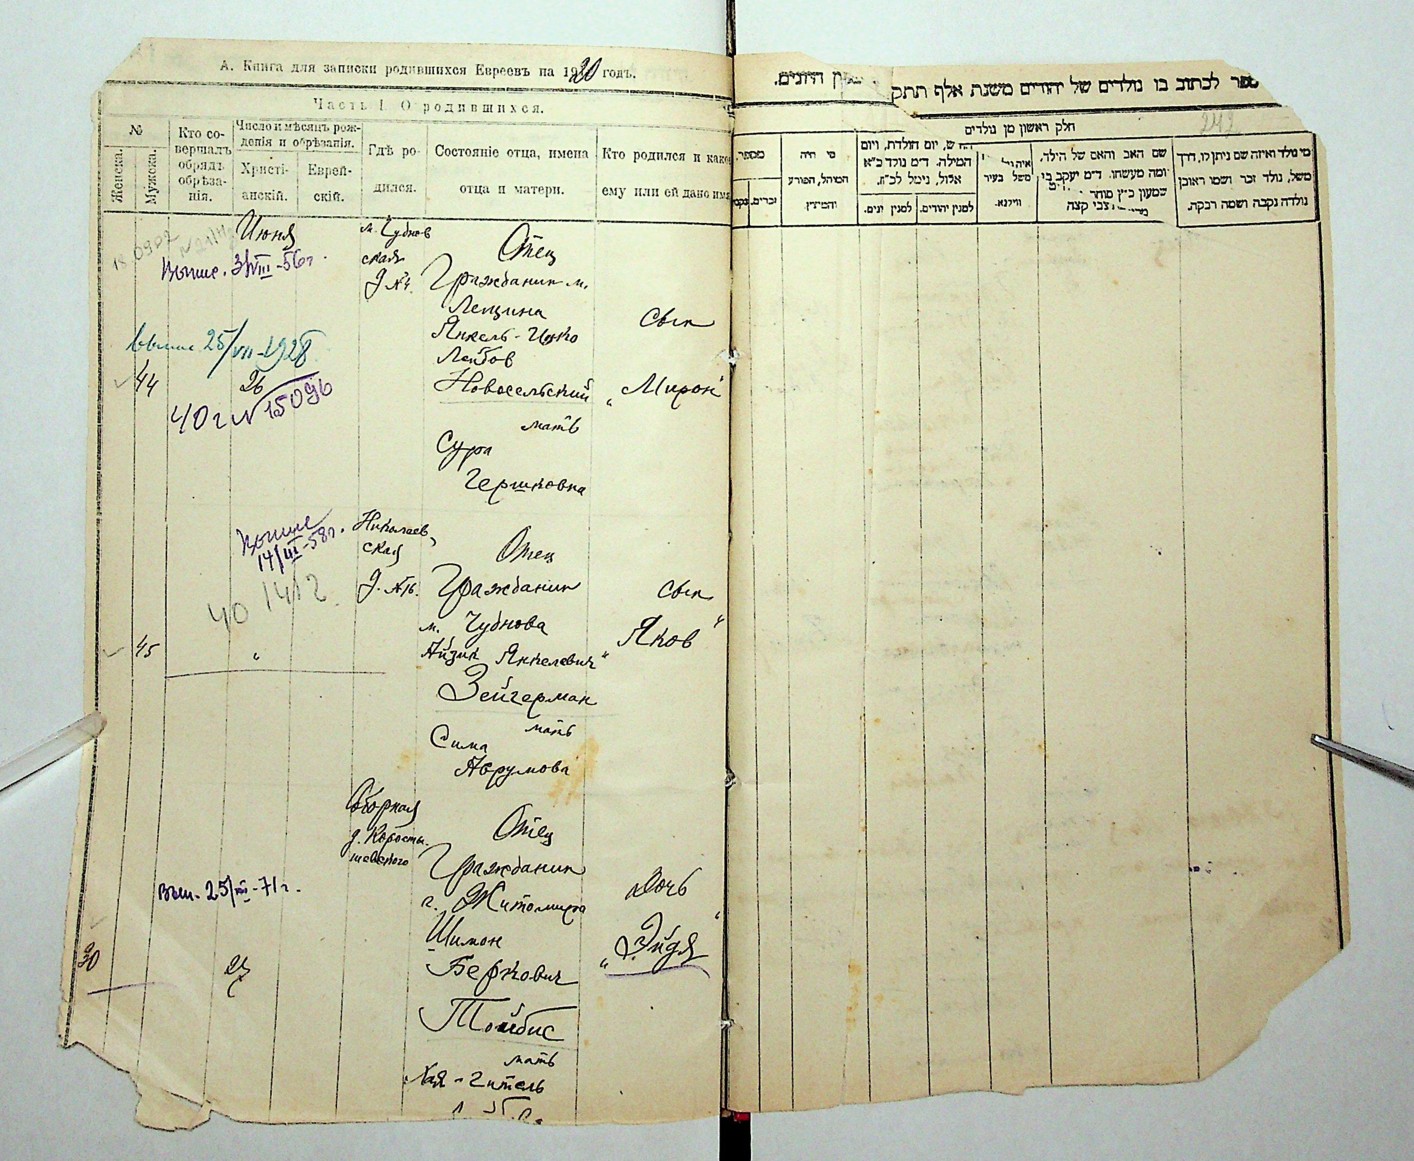 А. Книга для записки родившихся Евреевъ на 1920 годъ.
Часть I. О родившихся.
№
Женска.
Мужска.
Кто совершалъ обрядъ обрѣзанія.
Число и мѣсяцъ рожденія и обрѣзанія.
Христіанскій.
Еврейскій.
Гдѣ родился.
Состояніе отца, имена отца и матери.
Кто родился и какое ему или ей дано имя
Июня
м. Чуднов
ская
д №4.
Отец
Гражданин м.
Янкель-
Лейбов
Новосельский
мать
Сура
Гершковна
Сын
„Мирон"
Выпис. 25/VII-1928
44
26
40 г № 15096
14/III-58г.
Николаев
ская
д. №16.
Отец
Гражданин
м. Чуднова
Айзик Янкелевич
Зейгерман
мать
Сима
Аврумова
Сын
Яков"
40 1412
45
"
Соборная
д. Коросты-
шевского
Отец
Гражданин
г. Житомира
Шимон
Беркович
Тойбис
мать
Хая-Гитель
Дочь
„Эйдя"
Вып. 25/III-71г.
30
27
ספר לכתוב בו נולדים של יהודים משנת אלף תתק
היונים.
242
חלק ראשון מן נולדים
מספר.
זכרים.
מי היה המוהל, הפורע והמוצץ.
יום הולדת, ויום המילה. ד״מ נולד כ״א אלול, נימל לכ״ז.
למנין יהודים.
למנין יונים.
משל בעיר ווילנא.
שם האב והאם של הילד, ומה מעשהו. ד״מ יעקב בן שמעון כ״ץ סוחר
צבי קצה
מי נולד ואיזה שם ניתן לו, דרך משל, נולד זכר ושמו ראובן נולדה נקבה ושמה רבקה.